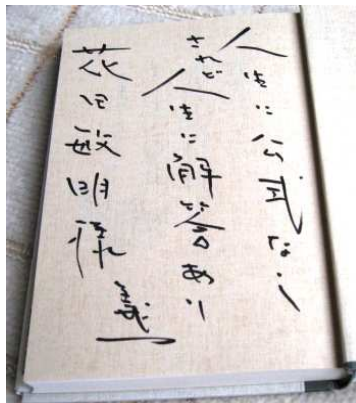 人生に公式なし
されど
人生に解答あり
花田敏明様
義一